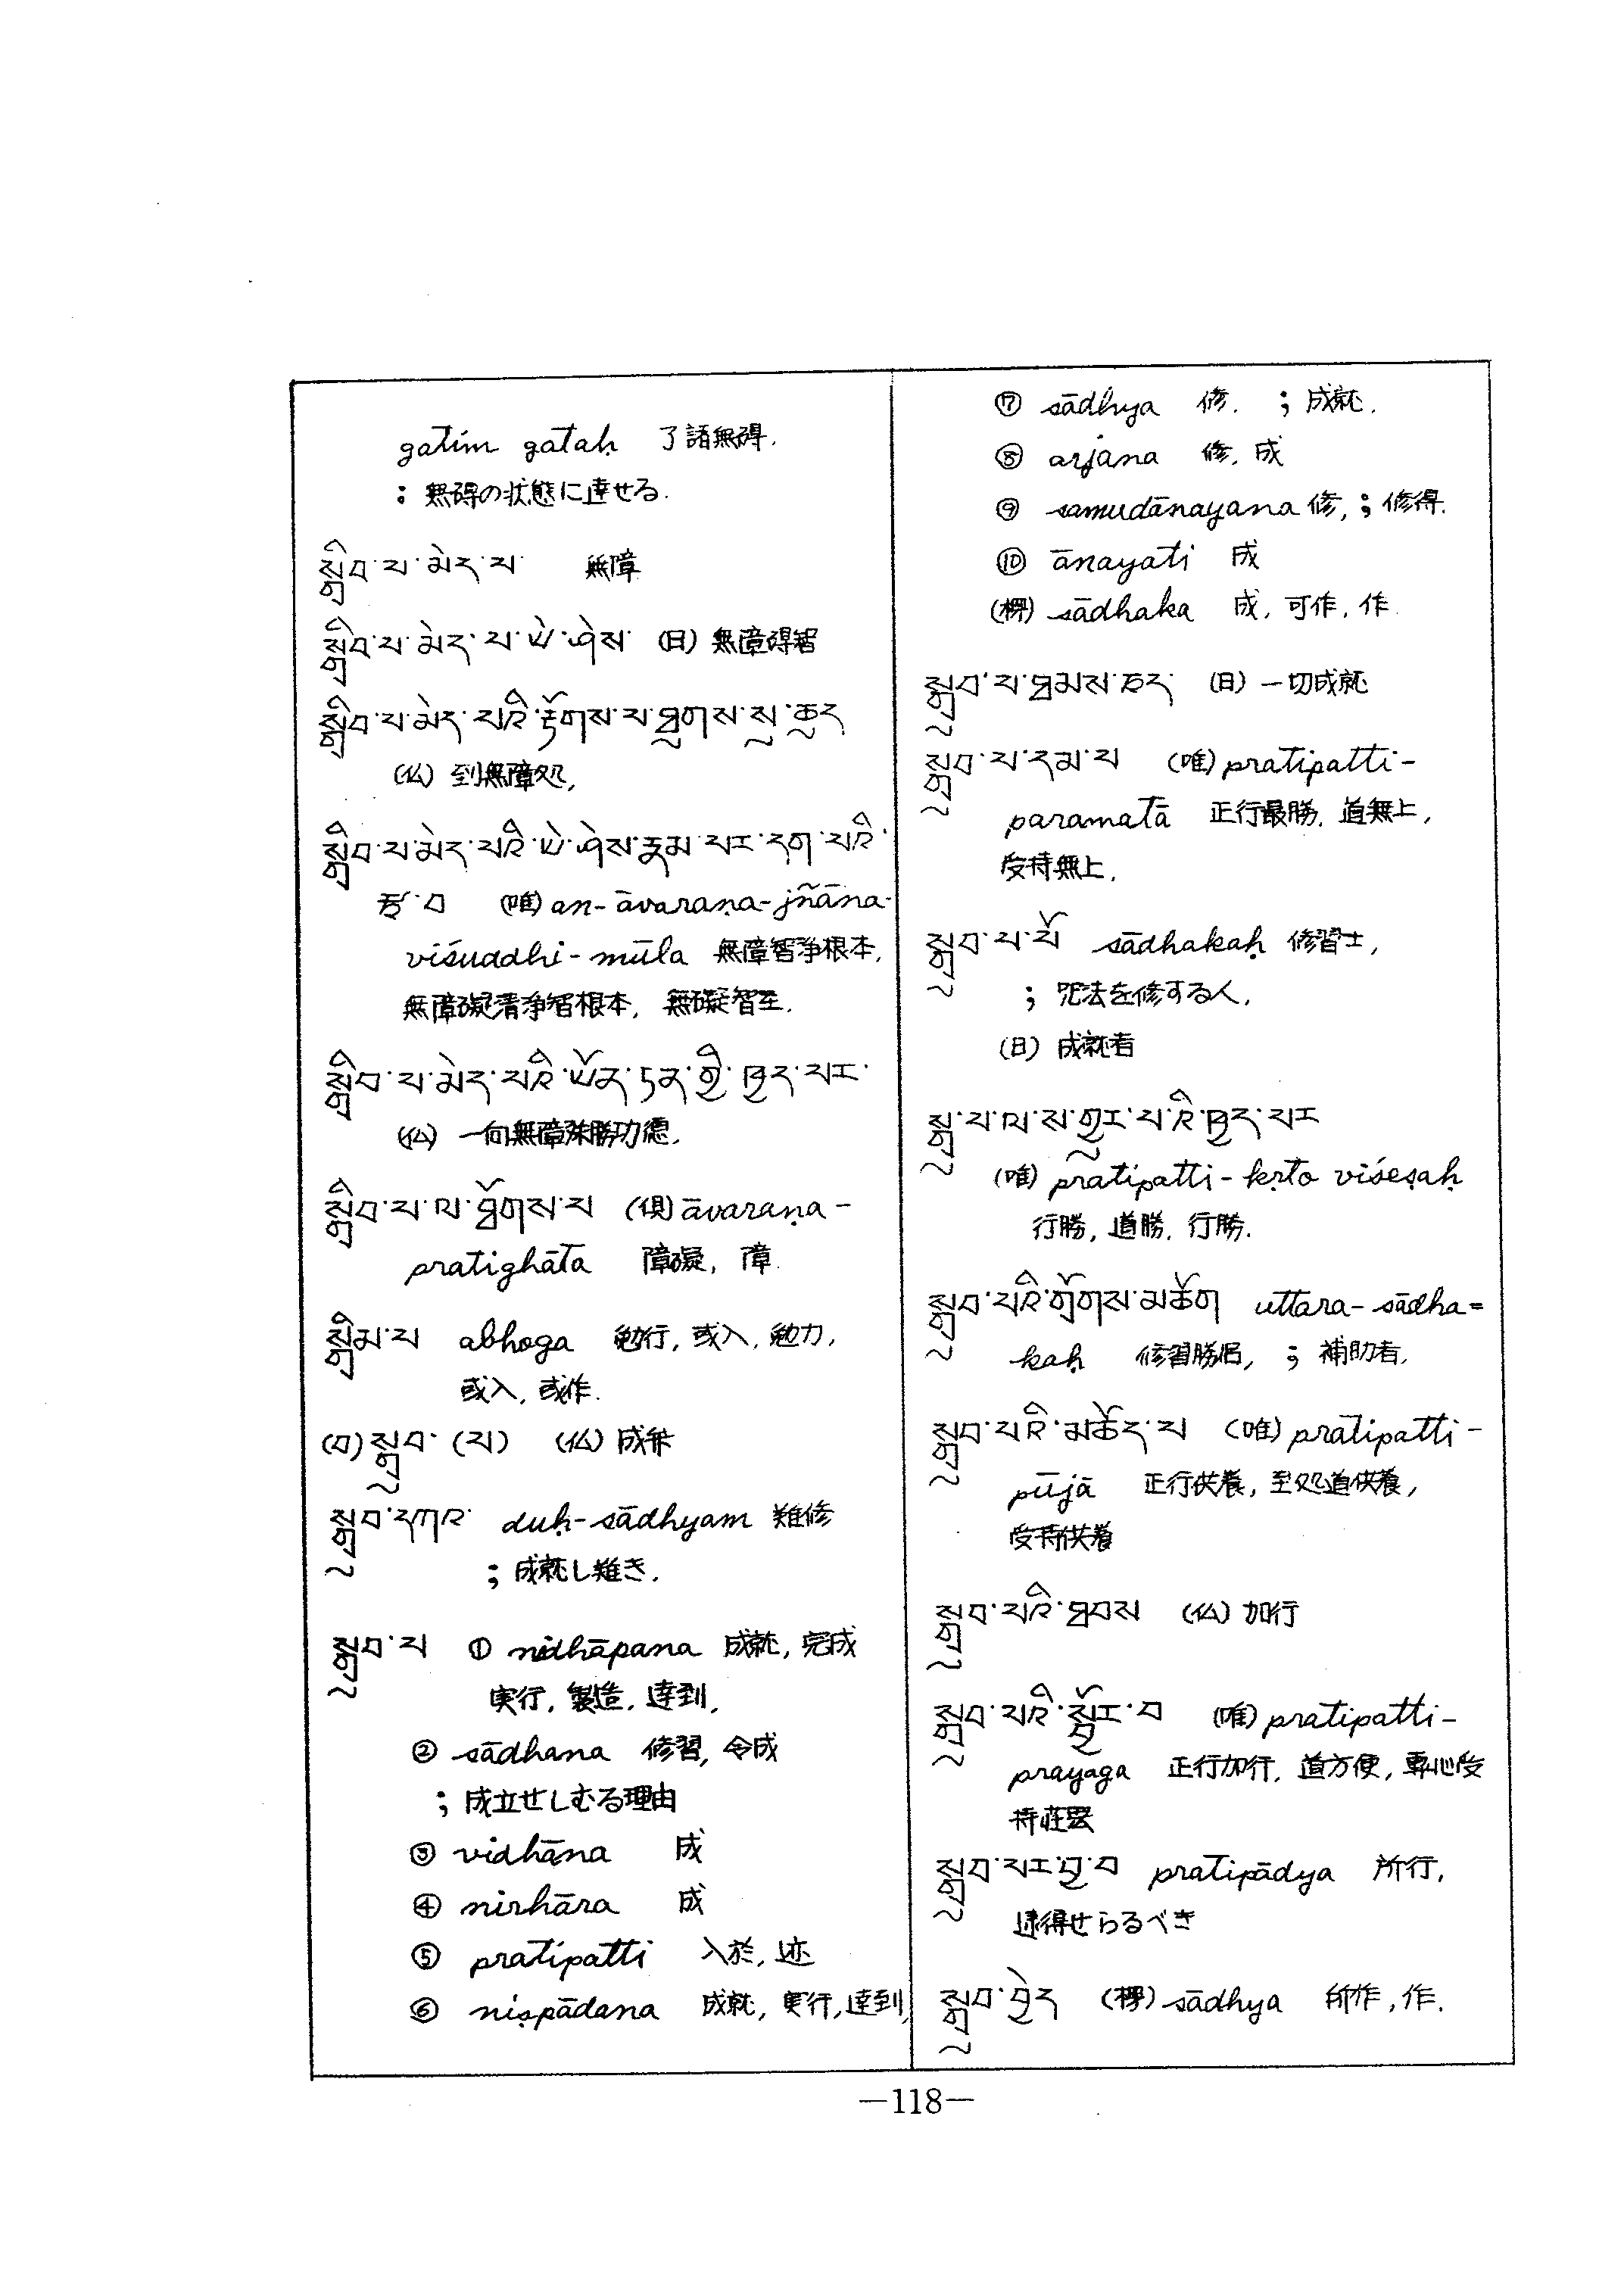 gatim gataḥ 了諸無碍.
; 無碍の状態に達せる.
སྒྲིབ་པ་མེད་པ་ 無障
སྒྲིབ་པ་མེད་པ་ཡེ་ཤེས་ (日) 無障碍智
སྒྲིབ་པ་མེད་པའི་རྟོགས་པ་ཐུགས་སུ་ཆུད
(仏) 到無障処,
སྒྲིབ་པ་མེད་པའི་ཡེ་ཤེས་རྣམ་པར་དག་པའི་
རྩ་བ (唯) an-āvaraṇa-jñāna-
viśuddhi-mūla 無障智浄根本,
無障礙清浄智根本, 無礙智至.
སྒྲིབ་པ་མེད་པའི་ཡོན་ཏན་གྱི་ཁྱད་པར་
(仏) 一向無障殊勝功徳.
སྒྲིབ་པ་ལ་ཐོགས་པ (倶) āvaraṇa-
pratighāta 障礙, 障.
སྒྲིམ་པ abhoga 勉行, 或入, 勉力,
或入, 或作.
(བ) སྒྲུབ་ (པ) (仏) 成弁
སྒྲུབ་དཀའ་ duḥ-sādhyam 難修
; 成就し難き.
སྒྲུབ་པ ① nidhāpana 成就, 完成
実行, 製造, 達到,
② sādhana 修習, 令成
; 成立せしむる理由
③ vidhāna 成
④ nirhāra 成
⑤ pratipatti 入於, 迹
⑥ niṣpādana 成就, 実行, 達到,
⑦ sādhya 修. ; 成就.
⑧ arjana 修, 成
⑨ samudānayana 修, ; 修得.
⑩ ānayati 成
(梵) sādhaka 成, 可作, 作.
སྒྲུབ་པ་ཐམས་ཅད་ (日) 一切成就
སྒྲུབ་པ་དམ་པ (唯) pratipatti-
paramatā 正行最勝, 道無上,
受持無上.
སྒྲུབ་པ་པོ sādhakaḥ 修習士,
; 咒法を修する人,
(日) 成就者
སྒྲུ་པ་ལས་གྱུར་པའི་ཁྱད་པར
(唯) pratipatti-kṛto viśeṣaḥ
行勝, 道勝, 行勝.
སྒྲུབ་པའི་གྲོགས་མཆོག uttara-sādha=
kaḥ 修習勝侶, ; 補助者.
སྒྲུབ་པའི་མཆོད་པ (唯) pratipatti-
pūjā 正行供養, 至処道供養,
受持供養
སྒྲུབ་པའི་ཐབས (仏) 加行
སྒྲུབ་པའི་སྦྱོར་བ (唯) pratipatti-
prayaga 正行加行, 道方便, 専心受
持荘厳
སྒྲུབ་པར་བྱ་བ pratipādya 所行,
逮得せらるべき
སྒྲུབ་བྱེད (梵) sādhya 所作, 作.
—118—